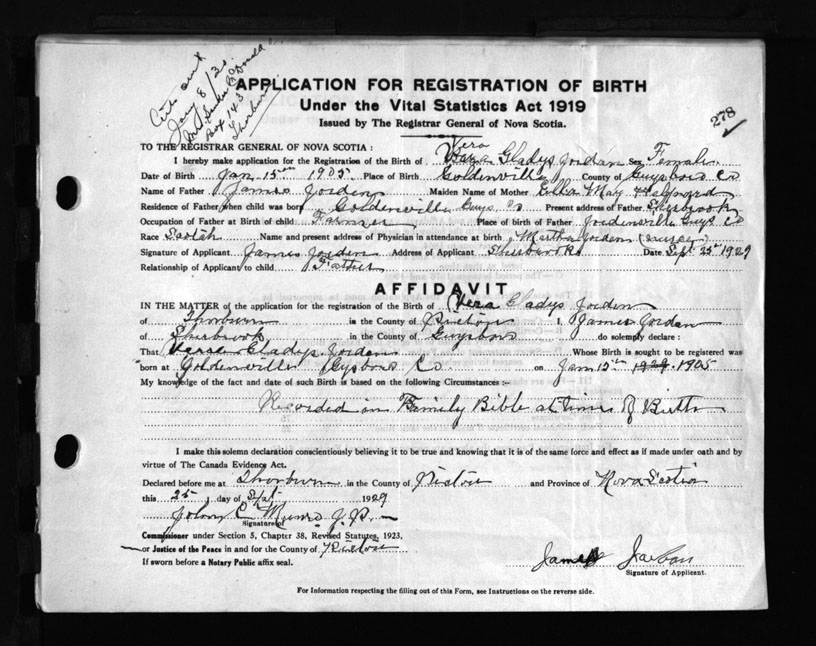 Jany 8/30
Box 143
Thorburn
APPLICATION FOR REGISTRATION OF BIRTH
Under the Vital Statistics Act 1919
Issued by The Registrar General of Nova Scotia.
278
TO THE REGISTRAR GENERAL OF NOVA SCOTIA:
Vera
I hereby make application for the Registration of the Birth of Gladys Jordan Sex Female
Date of Birth Jan 15th 1905 Place of Birth Goldenville County of Guysboro Co
Name of Father James Jorden Maiden Name of Mother May
Residence of Father when child was born Goldenville Guys Co Present address of Father Sherbrook
Occupation of Father at Birth of child Farmer Place of birth of Father Jordenville Guys Co
Race Scotch Name and present address of Physician in attendance at birth Martha Jordan (nurse)
Signature of Applicant James Jorden Address of Applicant Sherbrook Date Sept 25t 1929
Relationship of Applicant to child Father
AFFIDAVIT
IN THE MATTER of the application for the registration of the Birth of Vera Gladys Jorden
of Thorburn in the County of Pictou I, James Jorden
of Sherbrook in the County of Guysboro do solemnly declare:
That Gladys Jorden Whose Birth is sought to be registered was
born at Goldenville Gysboro Co on Jann 15th 1929 1905
My knowledge of the fact and date of such Birth is based on the following Circumstances:-
Recorded in Family Bible at time of Birth
I make this solemn declaration conscientiously believing it to be true and knowing that it is of the same force and effect as if made under oath and by
virtue of The Canada Evidence Act.
Declared before me at Thorburn in the County of Pictou and Province of Nova Scotia
this 25 day of Sept 1929
John C Munro J.P.
Signature of
Commissioner under Section 5, Chapter 38, Revised Statutes, 1923,
or Justice of the Peace in and for the County of Pictou
If sworn before a Notary Public affix seal.
James Jordan
Signature of Applicant.
For Information respecting the filling out of this Form, see Instructions on the reverse side.